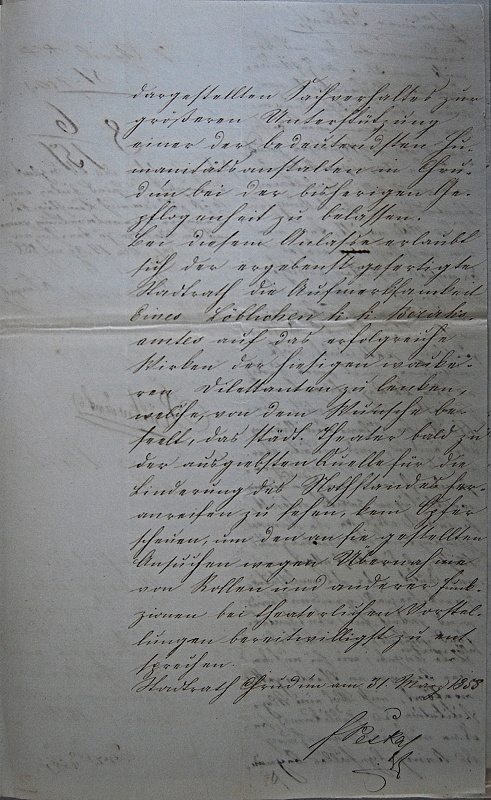 dargestellten Sachverhaltes zur
größeren Unterstützung
einer der bedeutendsten Hu-
manitätsanstalten in Chru-
dim bei der bisherigen Ge-
pflogenheit zu belassen.
Bei diesem Anlasse erlaubt
sich der ergebenst gefertigte
Stadtrath die Aufmerksamkeit
Eines Löblichen k k Bezirks-
amtes auf das erfolgreiche
Wirken der hiesigen wacke-
ren Dilettanten zu lenken,
welche, von dem Wunsche be-
seelt, das städt. Theater bald zu
der ausgiebsten Quelle für die
Linderung des Nothstandes her-
anreifen zu sehen, kein Opfer
scheuen, um den an sie gestellten
Ansuchen wegen Übernahme
von Rollen und anderer Funk-
zionen bei theaterlichen Vorstel-
lungen bereitwilligst zu ent-
sprechen.
Stadtrath Chrudim am 31. März